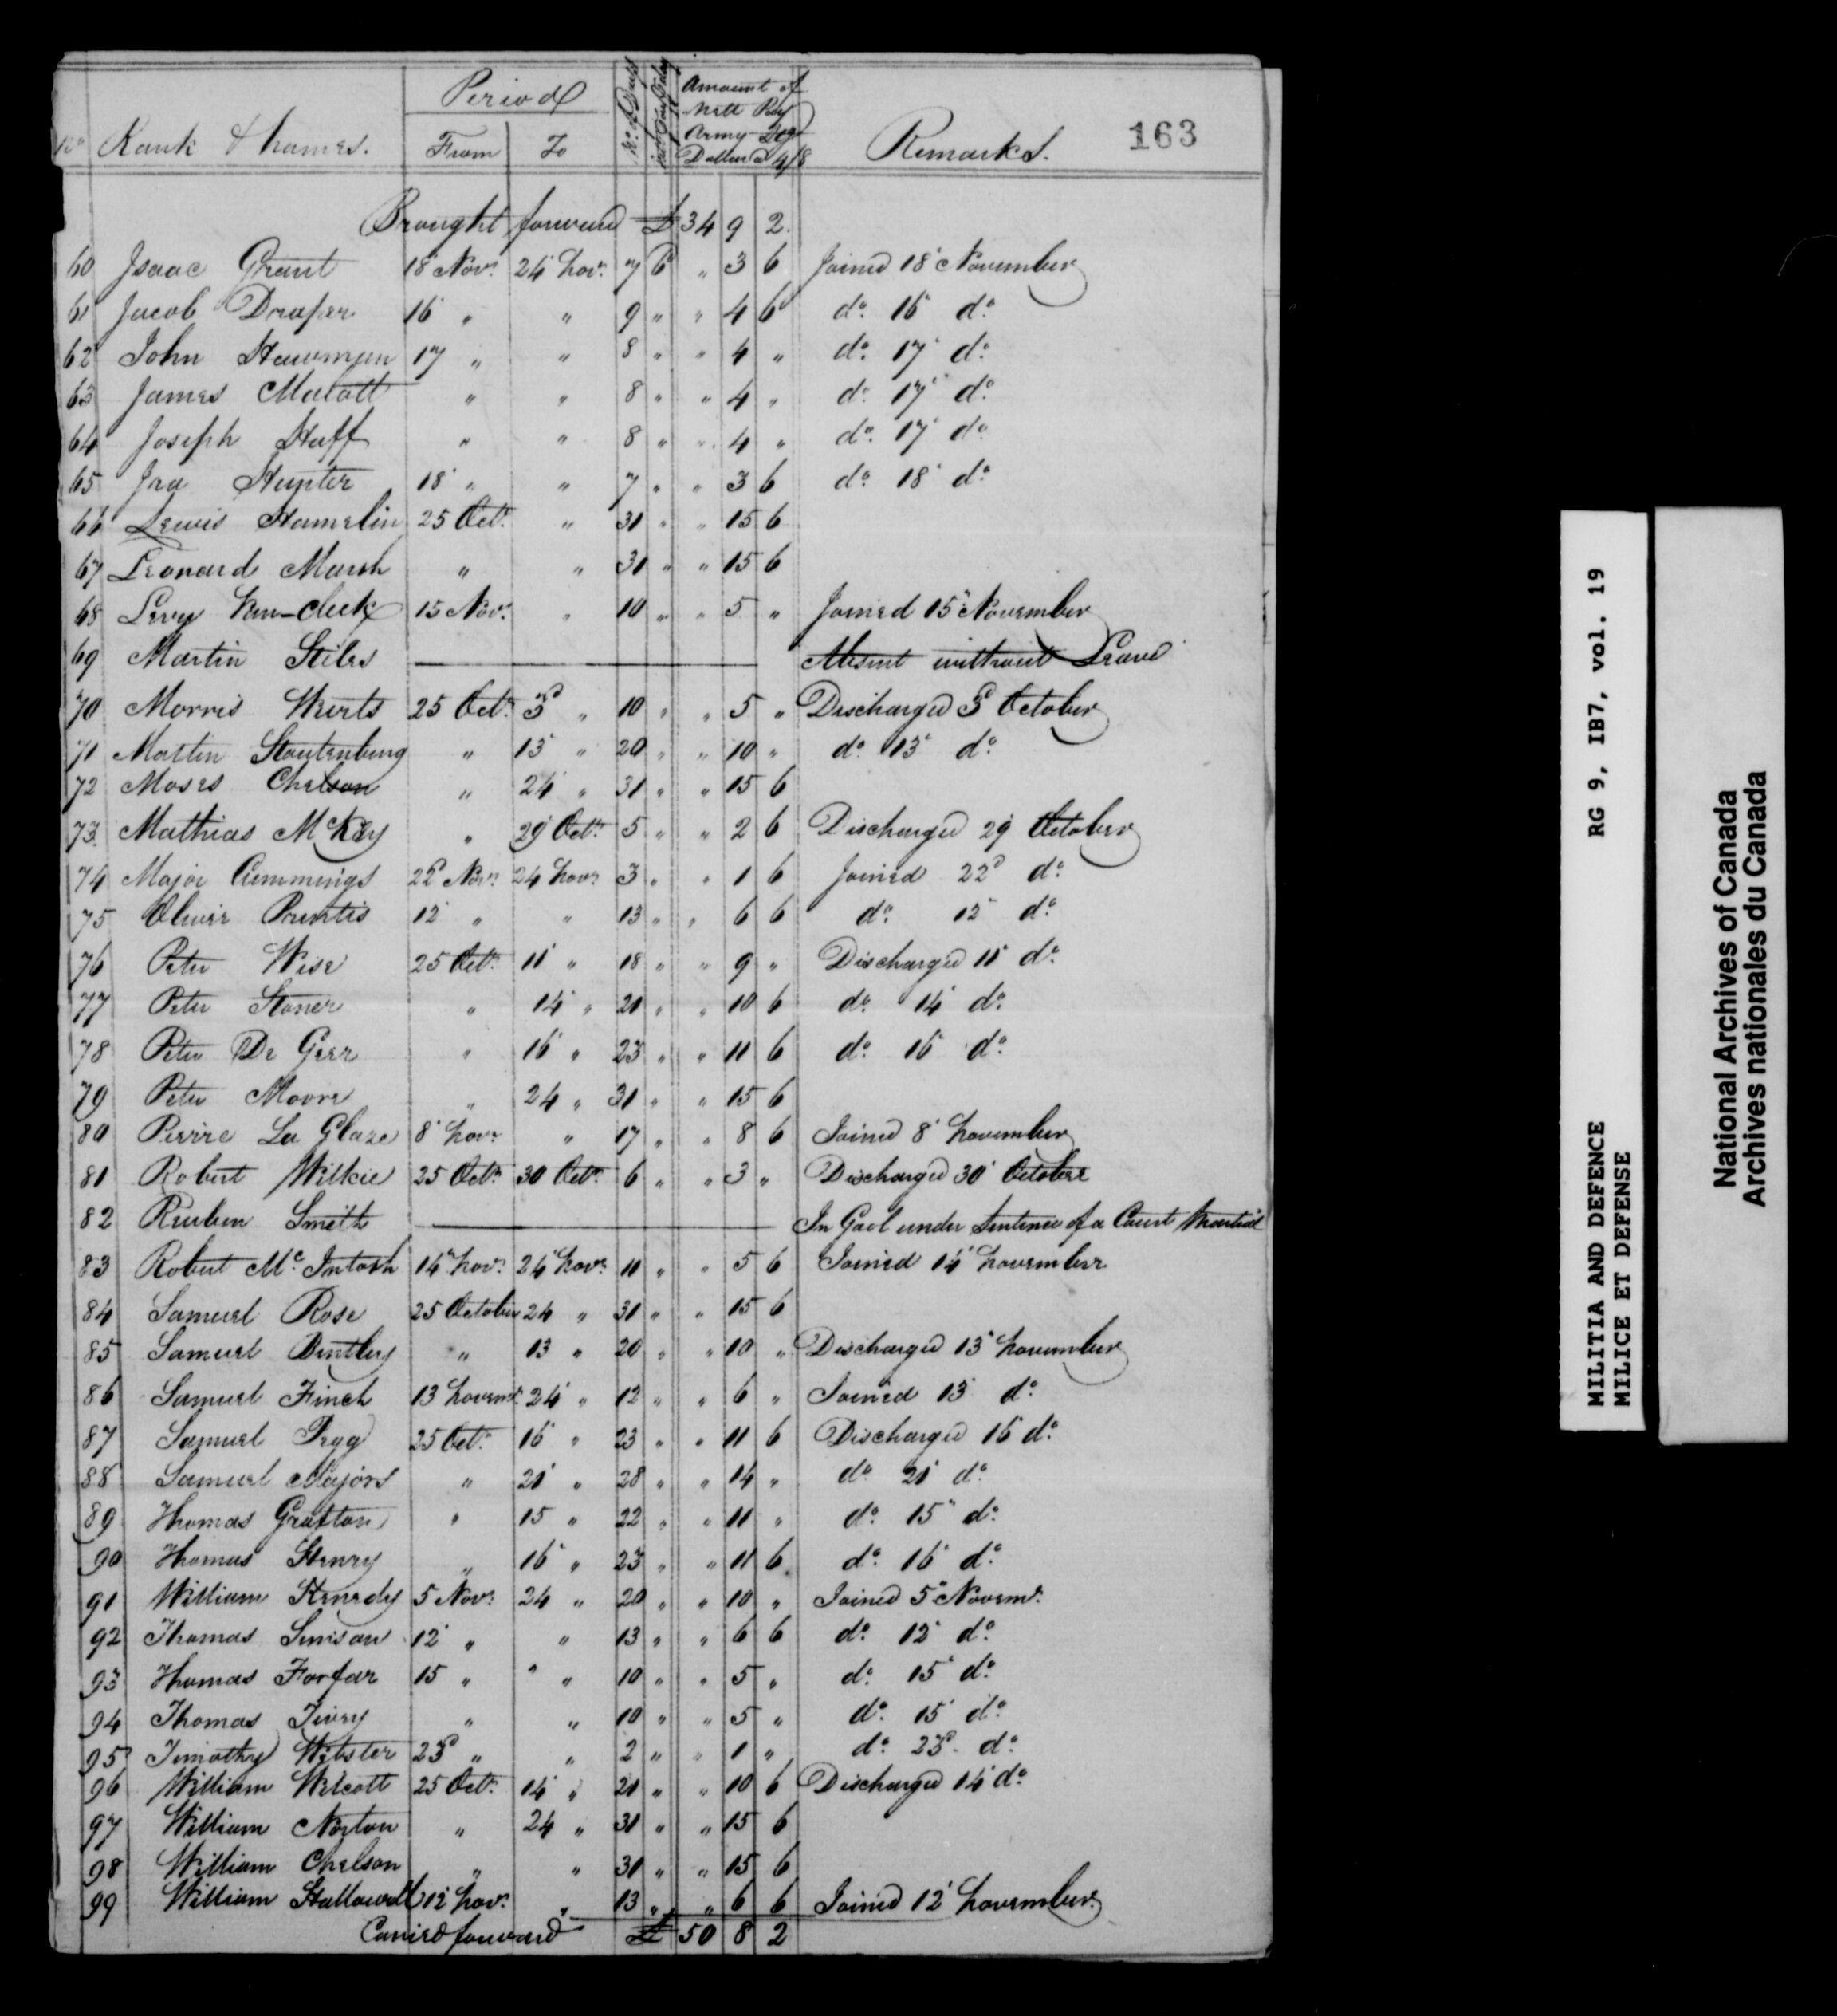 163
No Rank & Names. Period From To No. of Days Amount of Nett Pay Army Dollars @ 4/8 Remarks.
Brought forward £ 34 9 2.
60 Isaac Grant 18 Novr. 24 Novr. 7 6 " 3 6 Joined 18 November
61 Jacob Draper 16 " " 9 " " 4 6 do. 16 do.
62 John Hawman 17 " " 8 " " 4 " do. 17 do.
63 James Malott " " 8 " " 4 " do. 17 do.
64 Joseph Huff " " 8 " " 4 " do. 17 do.
65 Ira Hunter 18 " " 7 " " 3 6 do. 18 do.
66 Lewis Hamelin 25 Octr. " 31 " " 15 6
67 Leonard Marsh " " 31 " " 15 6
68 Levy Van-cleek 15 Novr. " 10 " " 5 " Joined 15 November
69 Martin Stiles Absent without Leave
70 Morris Wurts 25 Octr. 3d " 10 " " 5 " Discharged 3d October
71 Martin Stoutenburg " 13 " 20 " " 10 " do. 13 do.
72 Moses Chelson " 24 " 31 " " 15 6
73. Mathias McKay " 29 Octr. 5 " " 2 6 Discharged 29 October
74 Major Cummings 22d Novr. 24 Novr. 3 " " 1 6 Joined 22d do.
75 Oliver Pruntis 12 " " 13 " " 6 6 do. 12 do.
76 Peter Wise 25 Octr. 11 " 18 " " 9 " Discharged 11 do.
77 Peter Stoner " 14 " 21 " " 10 6 do. 14 do.
78 Peter De Geer " 16 " 23 " " 11 6 do. 16 do.
79 Peter Moore " 24 " 31 " " 15 6
80 Pierre La Glaze 8 Novr. " 17 " " 8 6 Joined 8 November
81 Robert Wilkie 25 Octr. 30 Octr. 6 " " 3 " Discharged 30 October
82 Reuben Smith In Gaol under Sentence of a Court Martial
83 Robert Mc. Intosh 14 Novr. 24 Novr. 11 " " 5 6 Joined 14 November
84 Samuel Rose 25 October 24 " 31 " " 15 6
85 Samuel Bentley " 13 " 20 " " 10 " Discharged 13 November
86 Samuel Finch 13 Novemr. 24 " 12 " " 6 " Joined 13 do.
87 Samuel Pegg 25 Octr. 16 " 23 " " 11 6 Discharged 16 do.
88 Samuel Majors " 21 " 28 " " 14 " do. 21 do.
89 Thomas Grafton " 15 " 22 " " 11 " do. 15 do.
90 Thomas Henry " 16 " 23 " " 11 6 do. 16 do.
91 William Kenedy 5 Novr. 24 " 20 " " 10 " Joined 5 Novemr.
92 Thomas Simson 12 " " 13 " " 6 6 do. 12 do.
93 Thomas Forfar 15 " " " 10 " " 5 " do. 15 do.
94 Thomas Ivory " " 10 " " 5 " do. 15 do.
95 Timothy Webster 23d " " 2 " " 1 " do. 23d. do.
96 William Wilcott 25 Octr. 14 " 21 " " 10 6 Discharged 14 do.
97 William Norton " 24 " 31 " " 15 6
98 William Chelson " " 31 " " 15 6
99 William Hallowell 12 Novr. " 13 " " 6 6 Joined 12 November.
Carried forward £ 50 8 2
MILITIA AND DEFENCE RG 9, IB7, vol. 19
MILICE ET DEFENSE
National Archives of Canada
Archives nationales du Canada